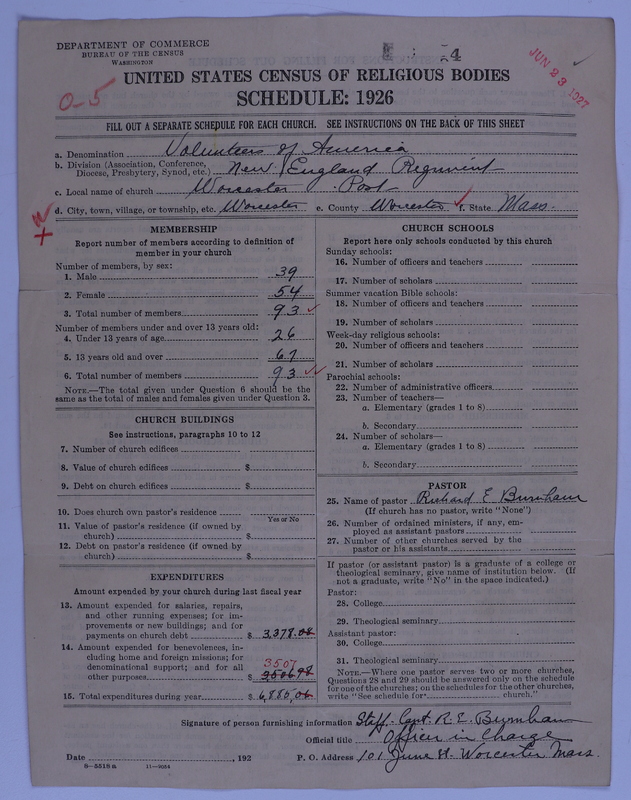 DEPARTMENT OF COMMERCE
BUREAU OF THE CENSUS
WASHINGTON
4
JUN 23 1927
UNITED STATES CENSUS OF RELIGIOUS BODIES
0-5
SCHEDULE: 1926
FILL OUT A SEPARATE SCHEDULE FOR EACH CHURCH. SEE INSTRUCTIONS ON THE BACK OF THIS SHEET
a. Denomination Volunteers of America
b. Division (Association, Conference, Diocese, Presbytery, Synod, etc.) New England Regiment
c. Local name of church Worcester Post
d. City, town, village, or township, etc. Worcester e. County Worcester f. State Mass.
MEMBERSHIP
Report number of members according to definition of
member in your church
Number of members, by sex:
1. Male 39
2. Female 54
3. Total number of members 93
Number of members under and over 13 years old:
4. Under 13 years of age 26
5. 13 years old and over 67
6. Total number of members 93
NOTE.—The total given under Question 6 should be the
same as the total of males and females given under Question 3.
CHURCH BUILDINGS
See instructions, paragraphs 10 to 12
7. Number of church edifices
8. Value of church edifices $
9. Debt on church edifices $
10. Does church own pastor's residence
Yes or No
11. Value of pastor's residence (if owned by
church) $
12. Debt on pastor's residence (if owned by
church) $
EXPENDITURES
Amount expended by your church during last fiscal year
13. Amount expended for salaries, repairs,
and other running expenses; for im-
provements or new buildings; and for
payments on church debt $ 3,378.08
14. Amount expended for benevolences, in-
cluding home and foreign missions; for
denominational support; and for all
3507
other purposes $ 3506.98
15. Total expenditures during year $ 6,885.06
CHURCH SCHOOLS
Report here only schools conducted by this church
Sunday schools:
16. Number of officers and teachers
17. Number of scholars
Summer vacation Bible schools:
18. Number of officers and teachers
19. Number of scholars
Week-day religious schools:
20. Number of officers and teachers
21. Number of scholars
Parochial schools:
22. Number of administrative officers
23. Number of teachers—
a. Elementary (grades 1 to 8)
b. Secondary
24. Number of scholars—
a. Elementary (grades 1 to 8)
b. Secondary
PASTOR
25. Name of pastor Richard E Burnham
(If church has no pastor, write "None")
26. Number of ordained ministers, if any, em-
ployed as assistant pastors
27. Number of other churches served by the
pastor or his assistants
If pastor (or assistant pastor) is a graduate of a college or
theological seminary, give name of institution below. (If
not a graduate, write "No" in the space indicated.)
Pastor:
28. College
29. Theological seminary
Assistant pastor:
30. College
31. Theological seminary
NOTE.—Where one pastor serves two or more churches,
Questions 28 and 29 should be answered only on the schedule
for one of the churches; on the schedules for the other churches,
write "See schedule for church."
Signature of person furnishing information Staff-Capt. R. E. Burnham
Official title Officer in Charge
Date , 192 P. O. Address 101 June St. Worcester Mass.
8-5518a 11-9554